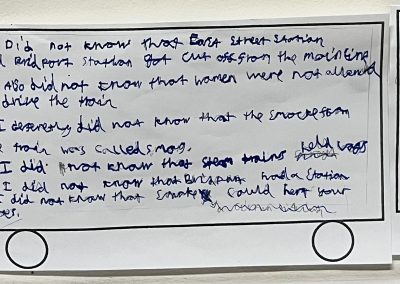 I Did not know that East Street Station
d Bridport Station got cut off from the mainline
Also did not know that women were not allowed
drive the train
I deserely did not know that the smocke from
e train was called smog.
I did not know that steam trains held
I did not know that Bridport had a Station
I did not know that Smoke could hert your
es.